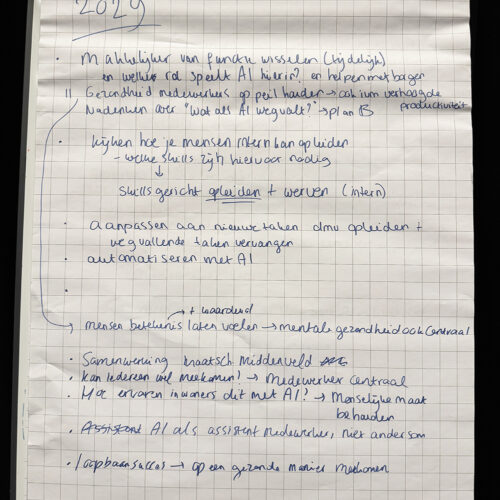 2029
· Makkelijker van functie wisselen (tijdelijk)
en welke rol speelt AI hierin? en helpen met burger
|| Gezondheid medewerkers op peil houden → ook ivm verhoogde productiviteit
Nadenken over "Wat als AI wegvalt?" → plan B
· kijken hoe je mensen intern kan opleiden
- welke skills zijn hiervoor nodig
↓
skills gericht opleiden + werven (intern)
· aanpassen aan nieuwe taken dmv opleiden +
wegvallende taken vervangen
· automatiseren met AI
·
→ + waarderend
mensen betekenis laten voelen → mentale gezondheid ook centraal
· Samenwerking maatsch middenveld
· kan iedereen wel meekomen? → Medewerker centraal
· Hoe ervaren inwoners dit met AI? → Menselijke maat
behouden
· Assistent AI als assistent medewerker, niet andersom
· loopbaansucces → op een gezonde manier meekomen